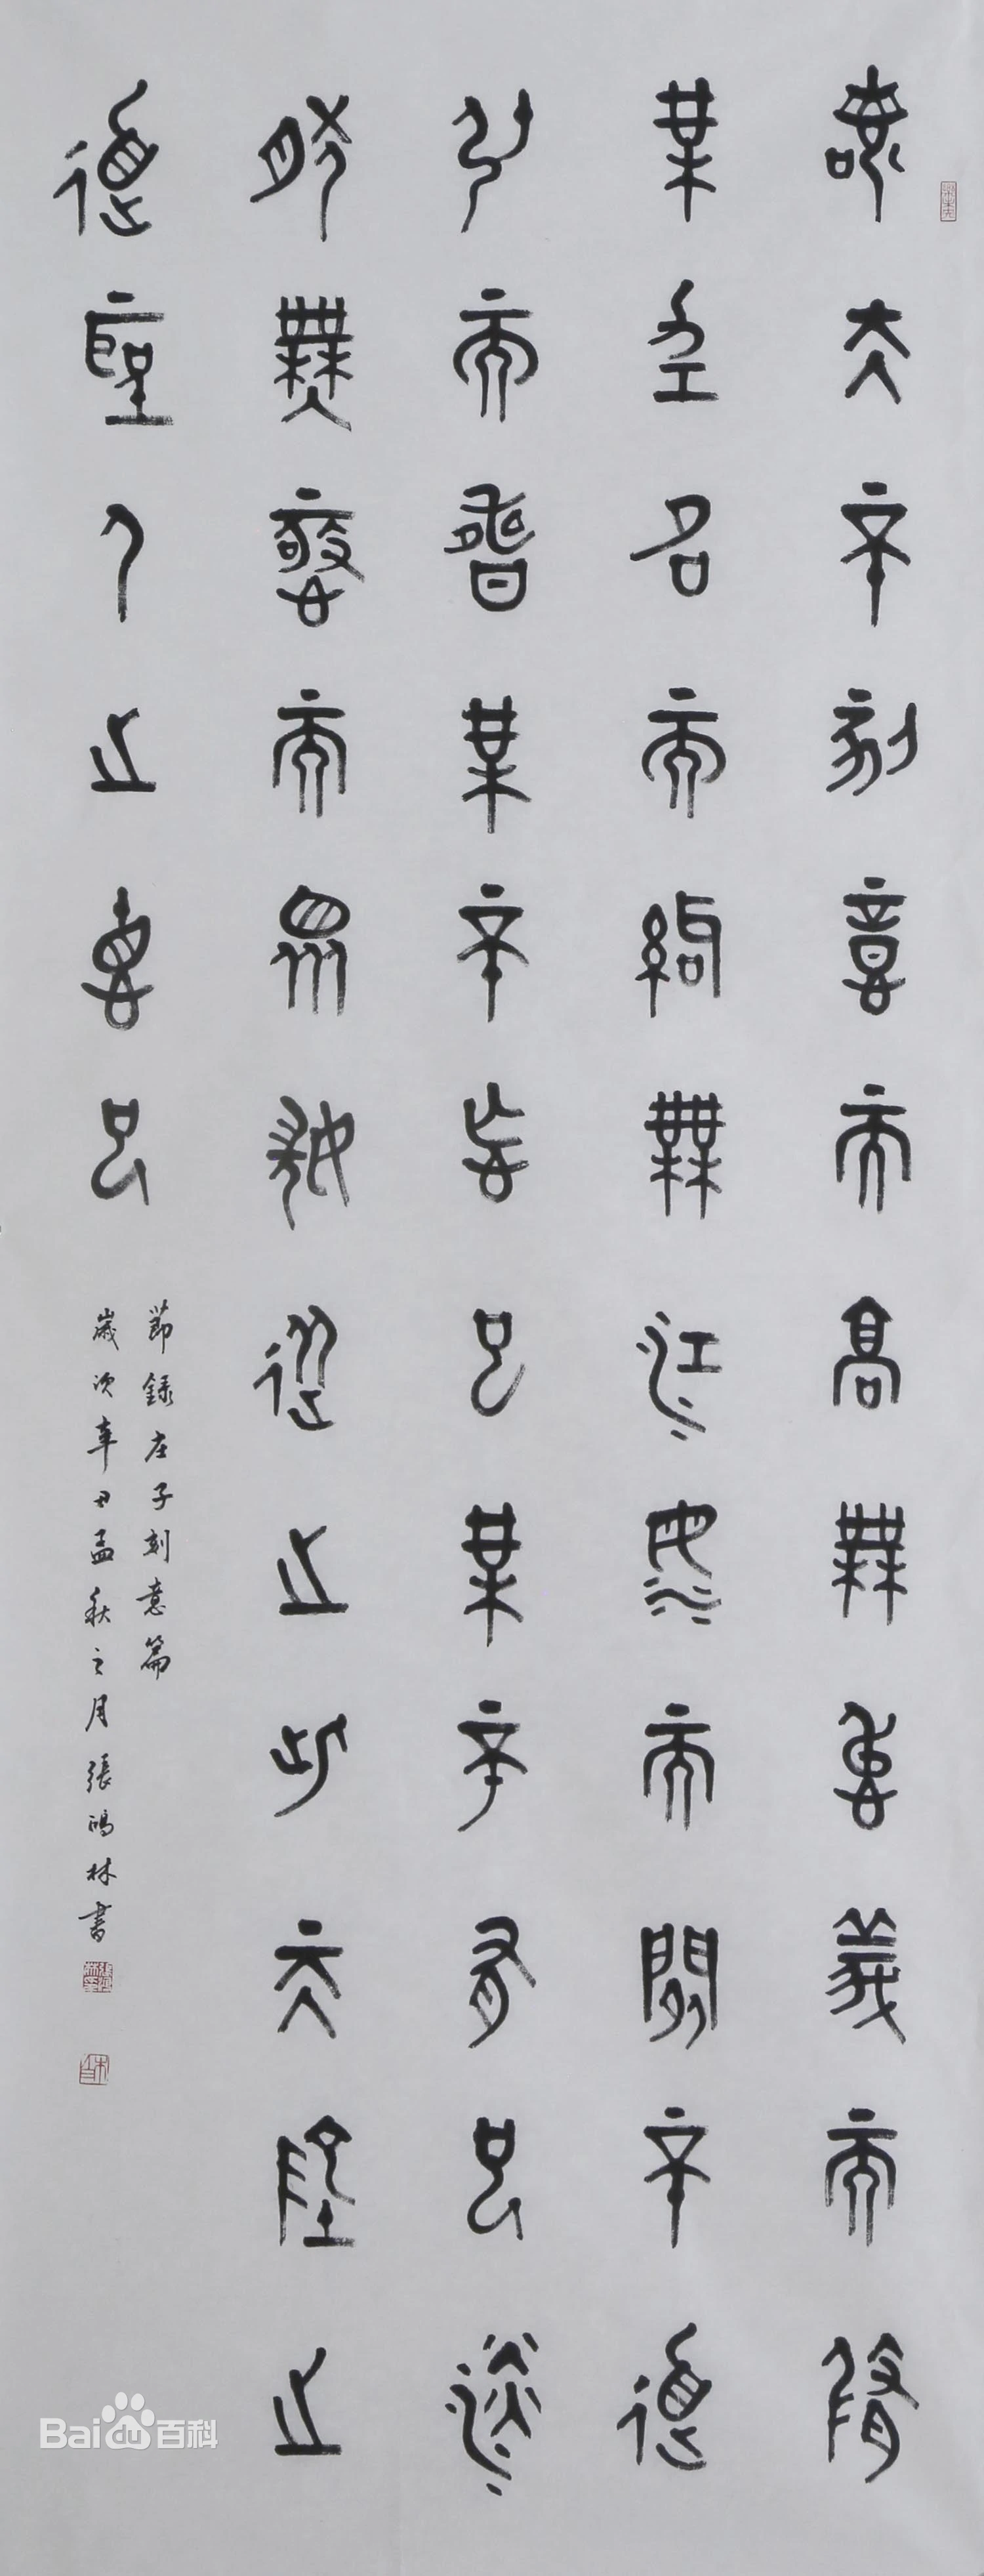 若夫不刻意而高無仁義而修
無功名而治無江海而閒不道
引而壽無不忘也無不有也澹
然無極而眾美從之此天地之
道聖人之德也
節録庄子刻意篇
歲次辛丑孟秋之月張鴻林書
Baidu百科